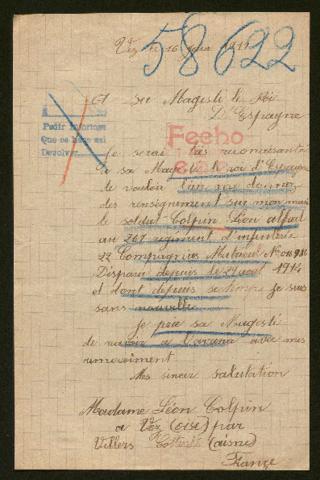 Vez le 16 Juin 1915
58622
A Sa Magesté le Roi
D'Espagne
Pedir informes
Devolver
Fecho
Je serai très reconnaissante
a sa Magesté le roi d'Espagne
de vouloir bien me donner
des renseignement sur mon mari
le soldat Colpin Léon
au 267 regiment d'infenterie
22 Compagnies Matricule
Disparu depuis le 29 août 1914
et dont depuis septembre je suis
sans nouvelle
Je prie sa Magesté
de avec mes
Mes sincer salutation
Madame Léon Colpin
a Vez (oise) par
Villers Cotterets (aisne)
France